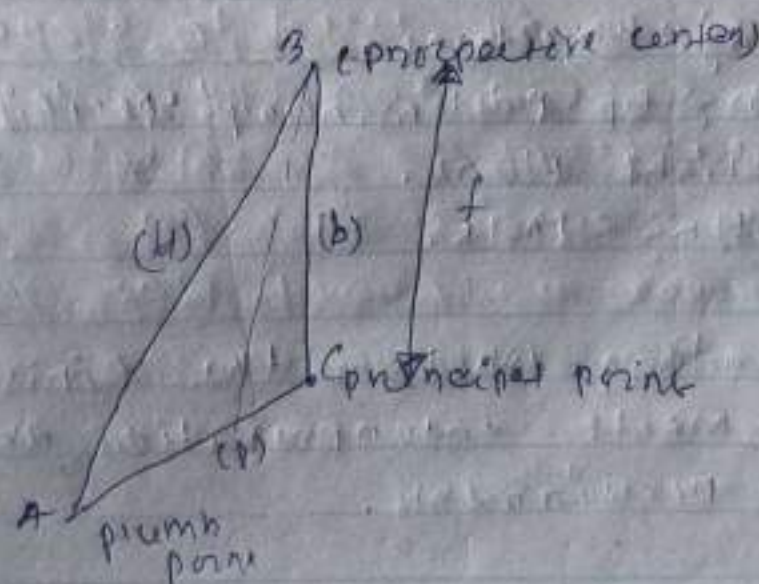 B (prospective center)
f
(H)
(b)
C principal point
(P)
A
plumb
point